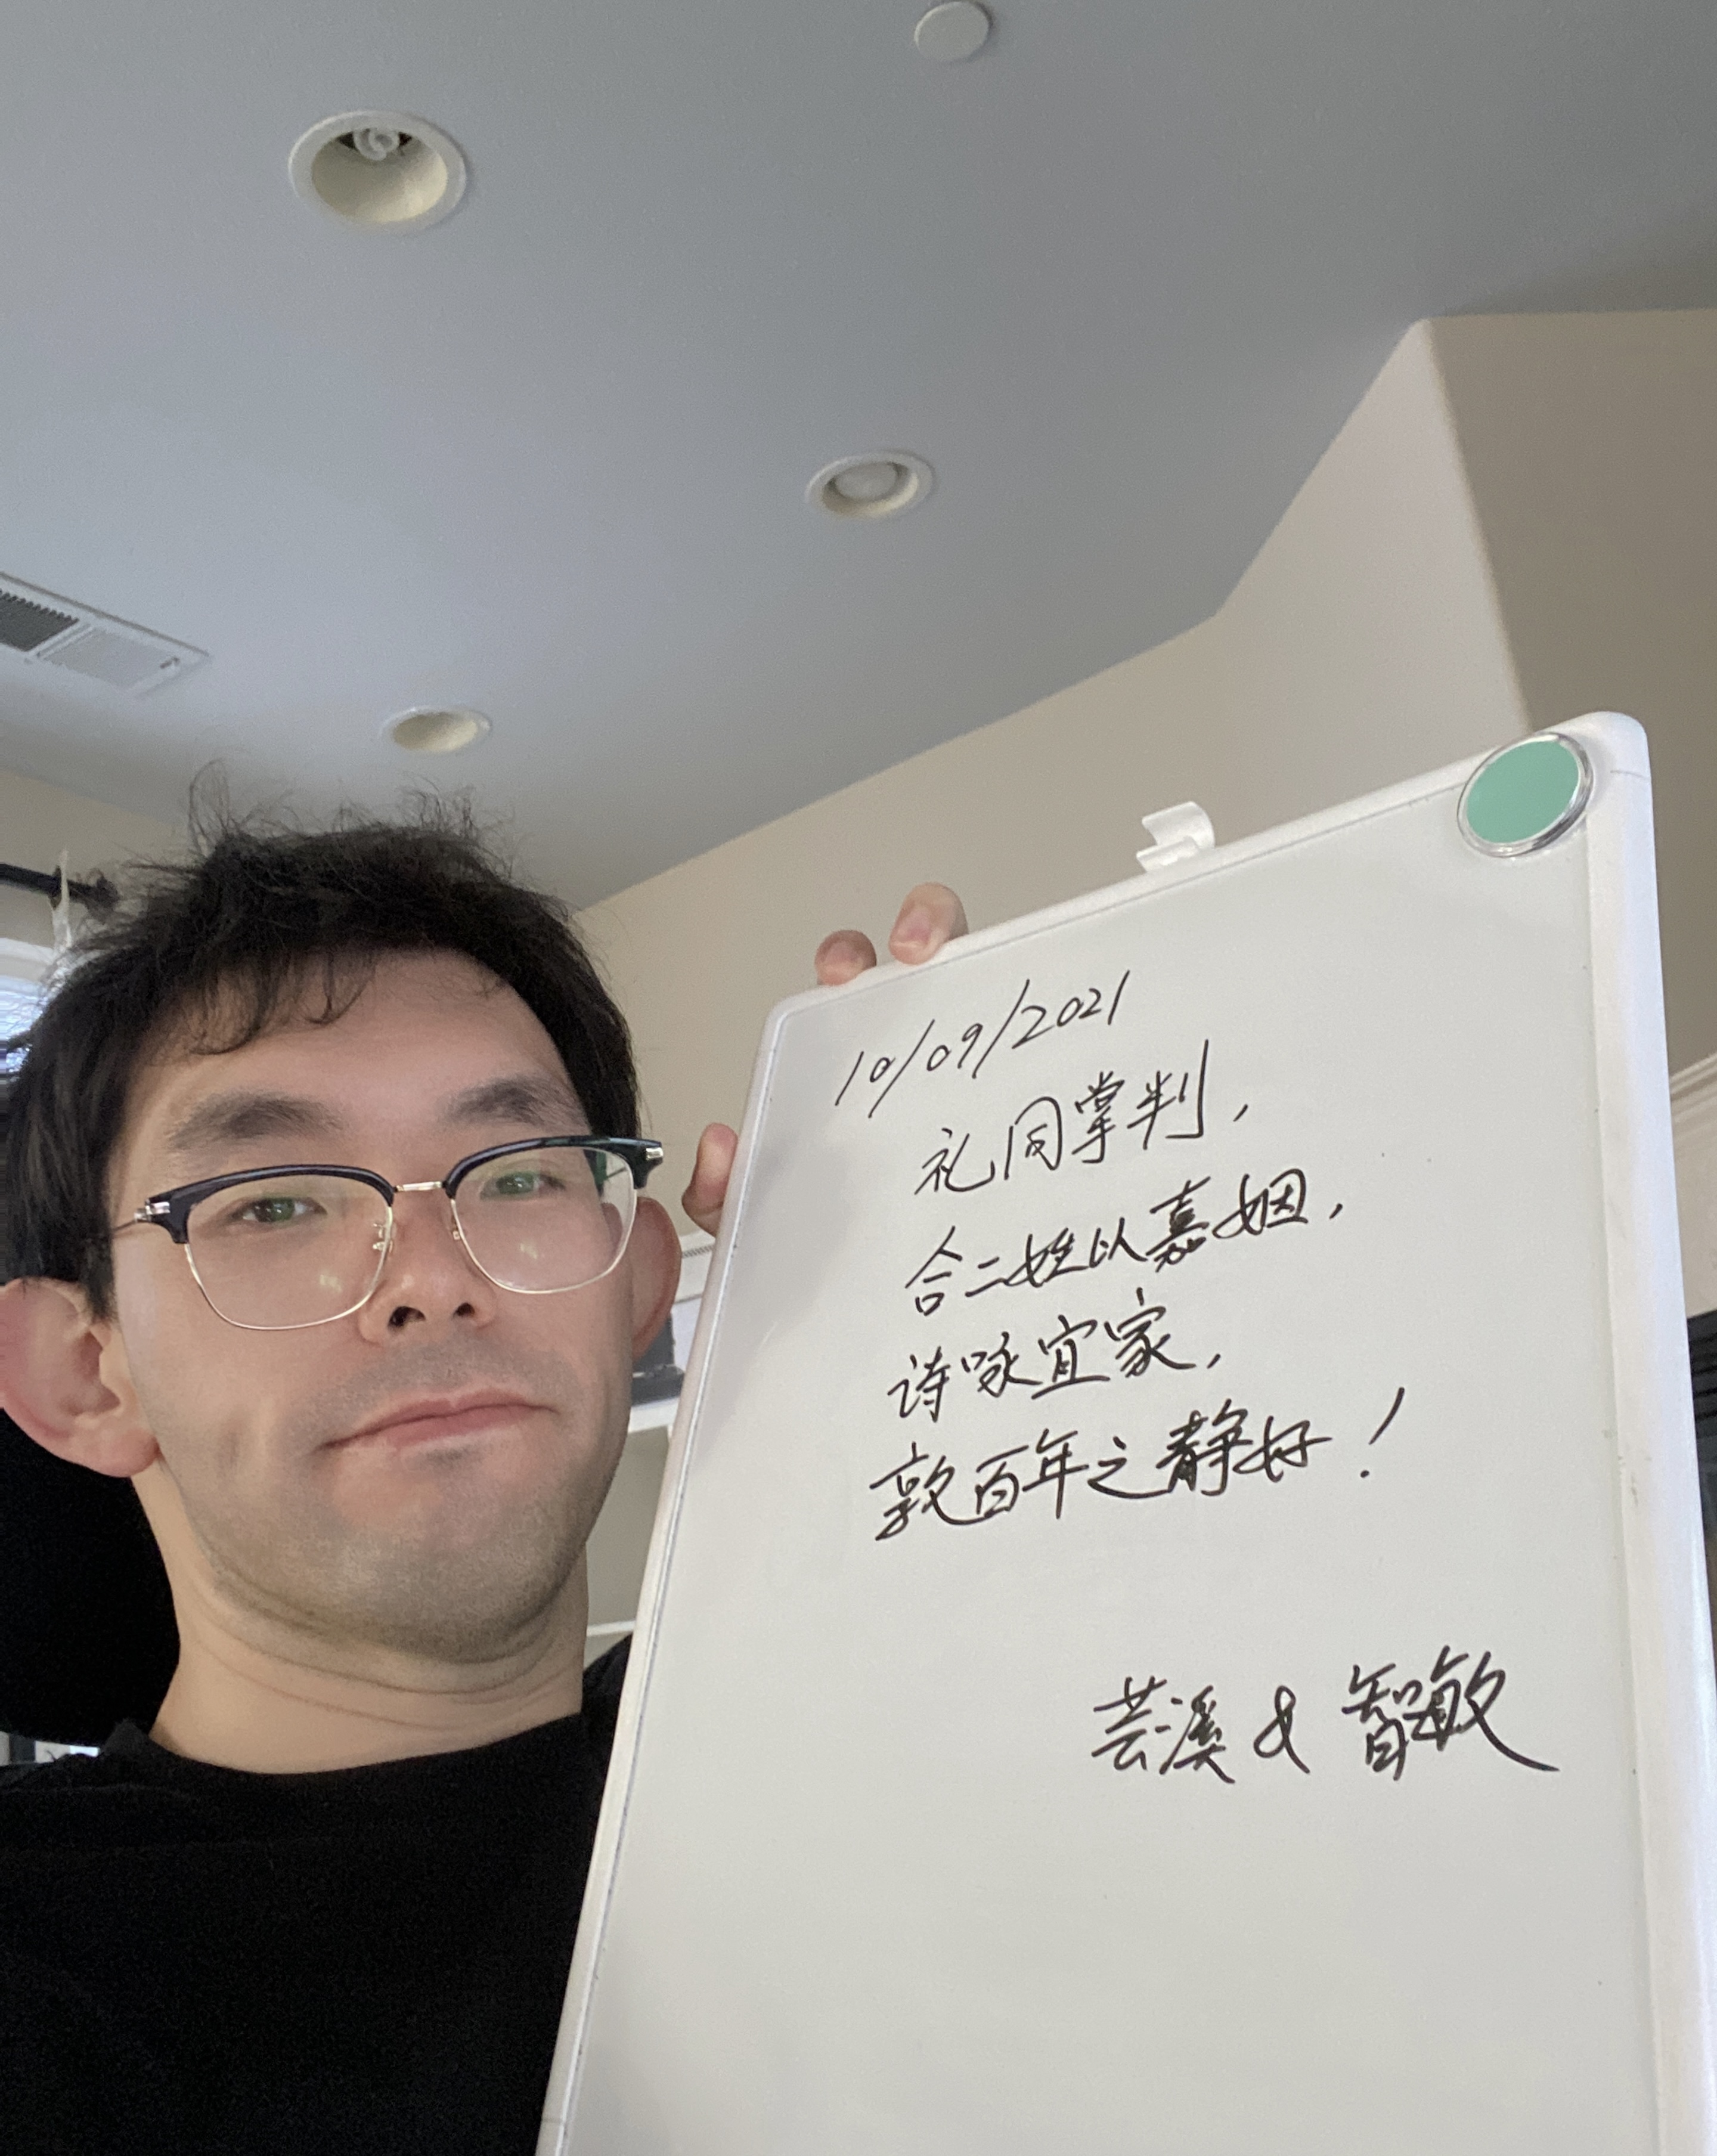 10/09/2021
礼同掌判，
合二姓以嘉姻，
诗咏宜家，
敦百年之静好！
芸溪 & 智敏